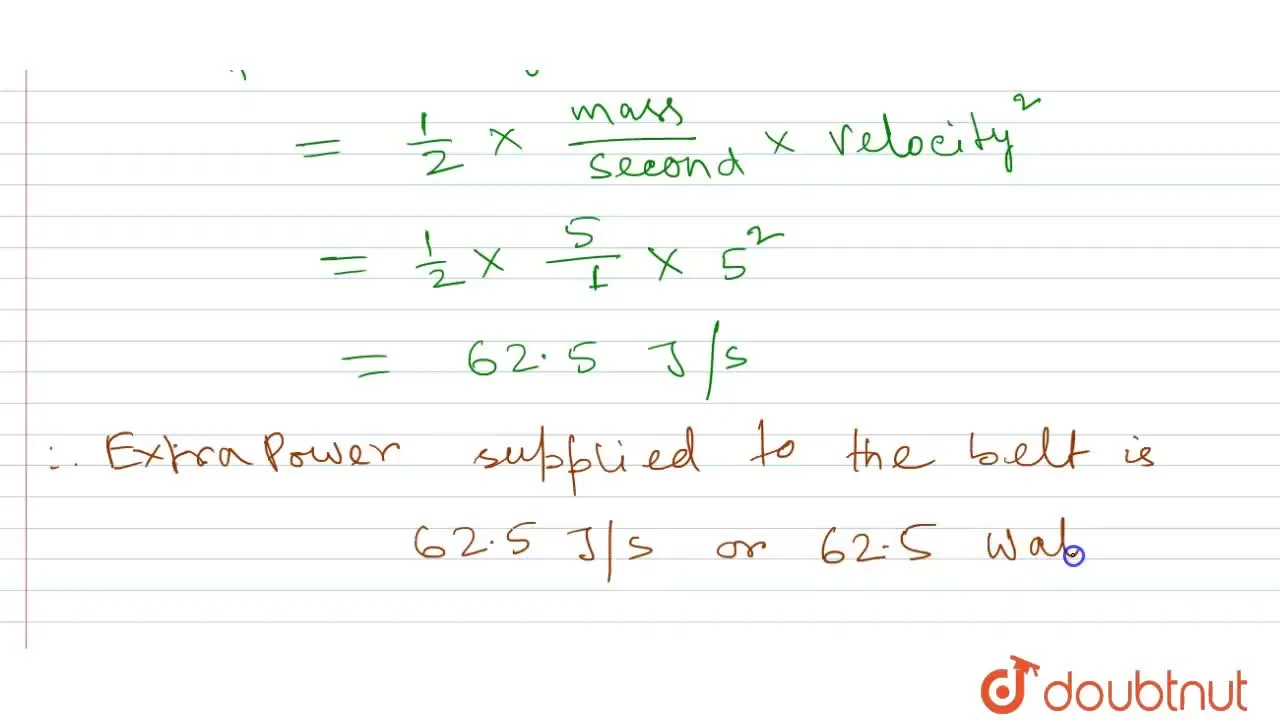 = 1/2 × mass/second × velocity²
= 1/2 × 5/1 × 5²
= 62.5 J/s
∴ Extra Power supplied to the belt is
62.5 J/s or 62.5 Wat
doubtnut